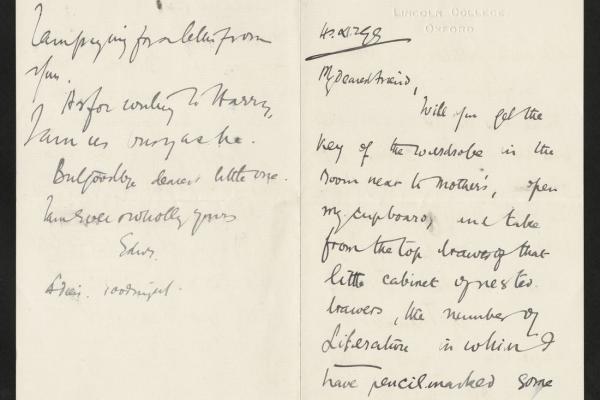 I am praying for a letter from
you.
As for writing to Harry,
I am as busy as he.
But goodbye dearest little one.
I am ever & wholly yours
Edwy.
goodnight.
LINCOLN COLLEGE
OXFORD
My dearest friend,
Will you get the
key of the wardrobe in the
room near to Mother's, open
my cupboard, and take
from the top drawer of that
little cabinet of nested
drawers, the number of
Literature in which I
have pencil-marked some